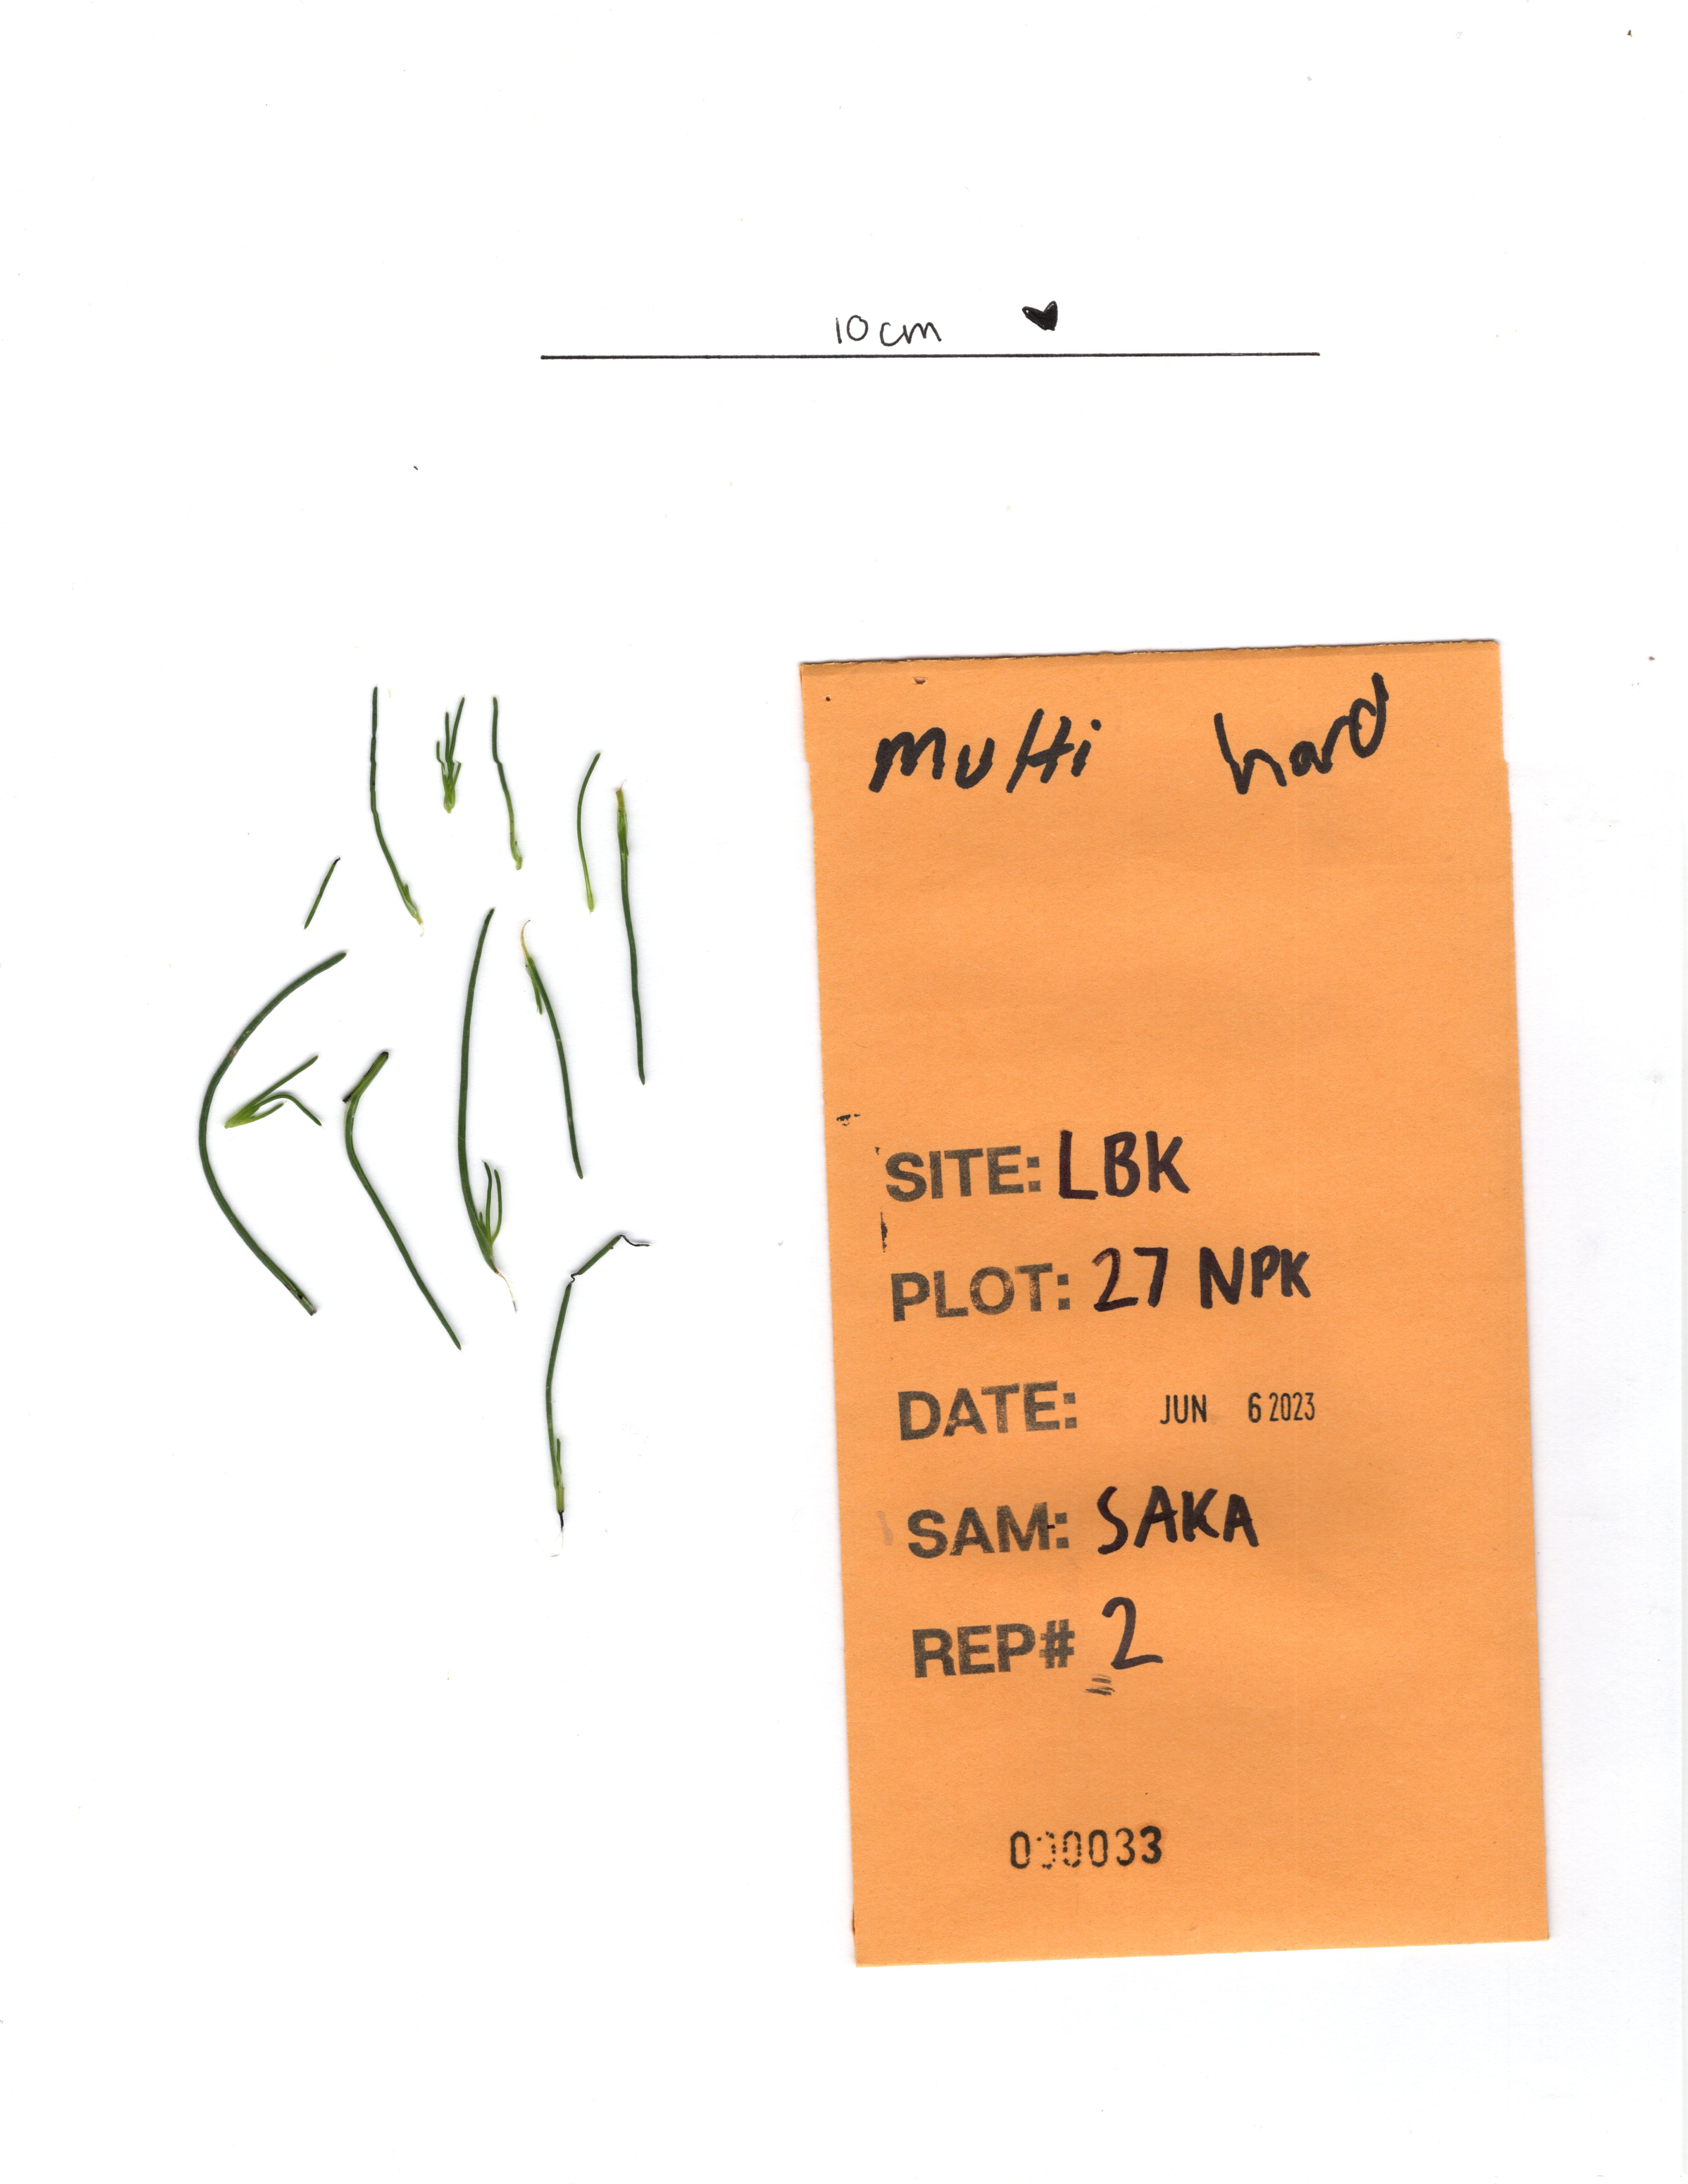 10cm
multi hard
SITE: LBK
PLOT: 27 NPK
DATE: JUN 6 2023
SAM: SAKA
REP# 2
000033